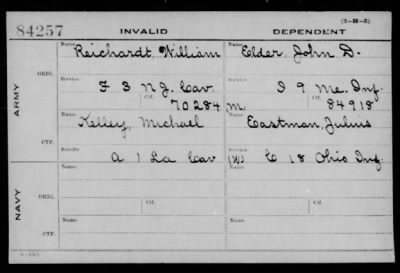 (3-H-3)
84257 INVALID DEPENDENT
Name Reichardt, William Name Elder, John D.
ARMY
ORIG.
Service F 3 N J. Cav Service I 9 Me. Inf.
Ctf. 70284 M. Ctf. 84918
Name Kelley, Michael Name Eastman, Julius
CTF.
Service A 1 La Cav Service (W) C 18 Ohio Inf
NAVY
Name Name
ORIG.
Ctf. Ctf.
Name Name
CTF.